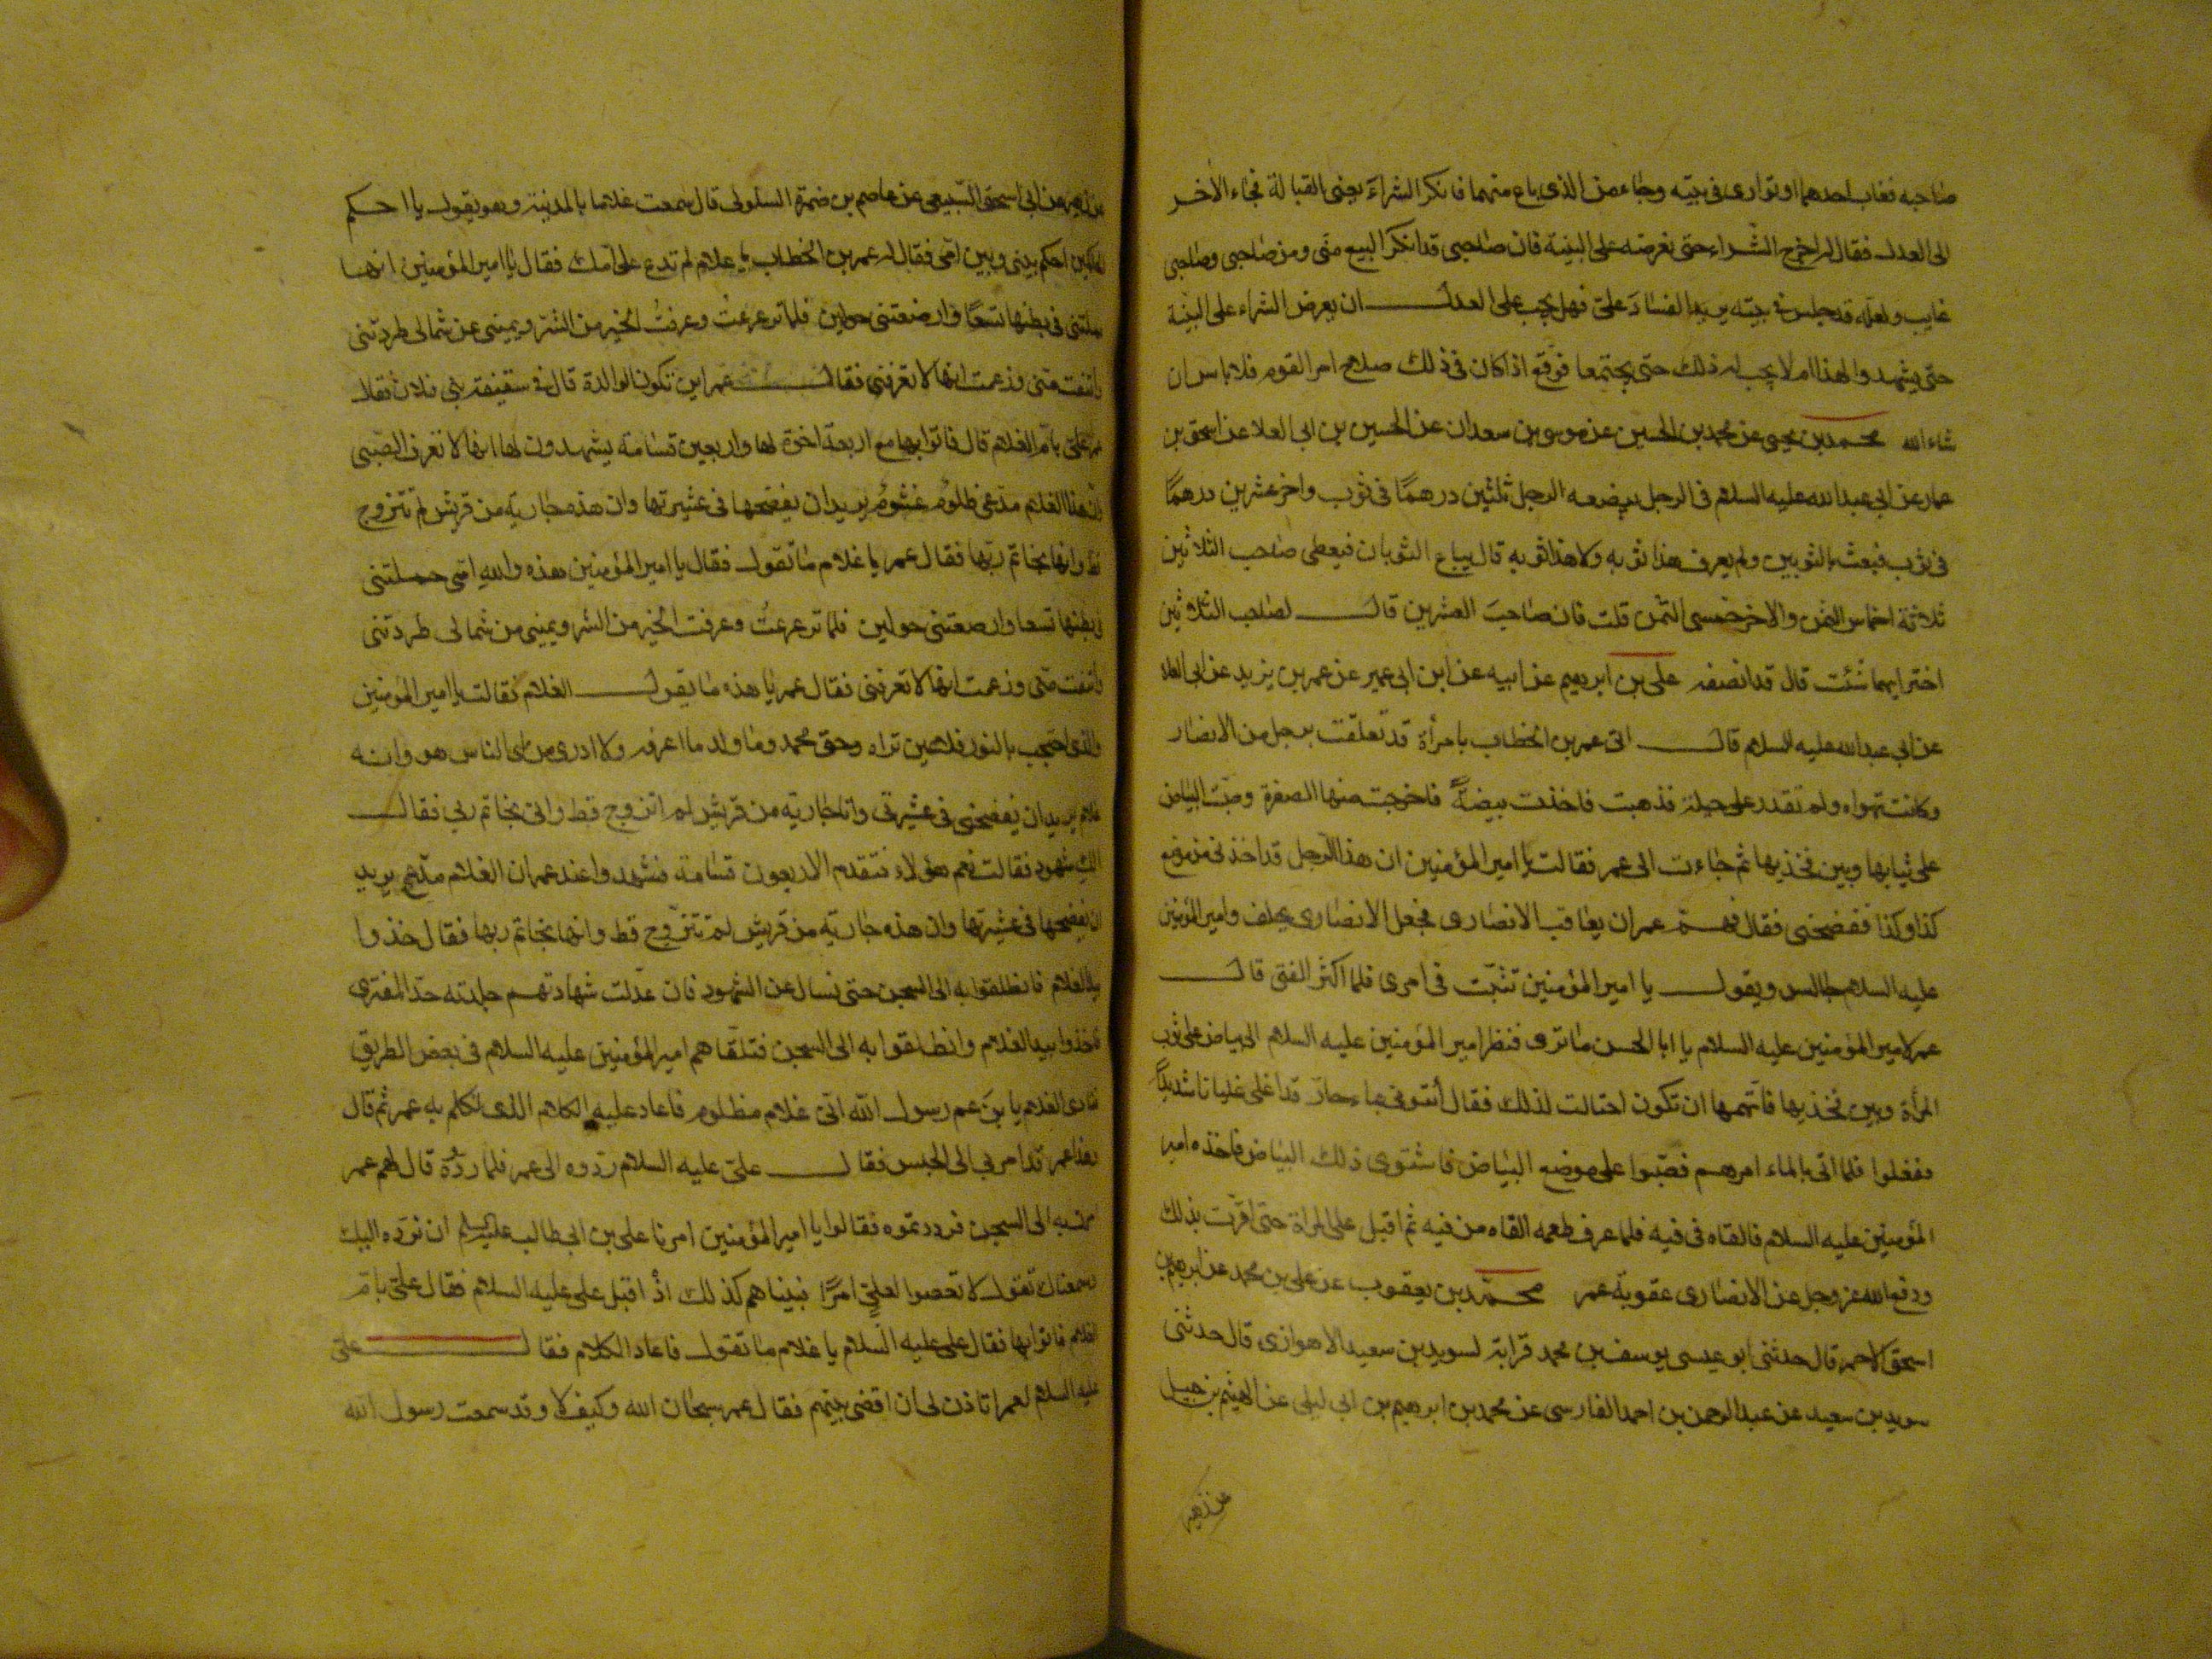 صاحبه فغاب احدهما او توارى فى بيته وجاء من الذى باع منهما فانكر الشراء يعنى القبالة فجاء الاخر
الى العدل فقال له اخرج الشراء حتى نعرضه على البينة فان صاحبى قد انكر البيع منى ومن صاحبى وصاحبى
غايب ولعله قد جلس فى بيته يريد الفساد على فهل يجب على العدل ان يعرض الشراء على البينة
حتى يشهدوا لهذا ام لا يجب له ذلك حتى يجتمعا فوقع اذا كان فى ذلك صلاح امر القوم فلا باس ان
شاء الله محمد بن يحيى عن محمد بن الحسين عن موسى بن سعدان عن الحسين بن ابى العلا عن اسحق بن
عمار عن ابى عبد الله عليه السلام فى الرجل يبضعه الرجل ثلثين درهمًا فى ثوب واخر عشرين درهمًا
فى ثوب فبعث بالثوبين ولم يعرف هذا ثوبه ولا هذا ثوبه قال يباع الثوبان فيعطى صاحب الثلاثين
ثلاثة اخماس الثمن والاخر خمسى الثمن قلت فان صاحب العشرين قال لصاحب الثلاثين
اختر ايهما شئت قال قد انصفه على بن ابرهيم عن ابيه عن ابن ابى عمير عن عمر بن يزيد عن ابى العلا
عن ابى عبد الله عليه السلام قال اتى عمر بن الخطاب بامرأة قد تعلقت برجل من الانصار
وكانت تهواه ولم تقدر على حيلة فذهبت فاخذت بيضةً فاخرجت منها الصفرة وصبت البياض
على ثيابها وبين فخذيها ثم جاءت الى عمر فقالت يا امير المؤمنين ان هذا الرجل قد اخذنى فى موضع
كذا وكذا ففضحنى فقال فهم عمر ان يعاقب الانصارى فجعل الانصارى يحلف وامير المؤمنين
عليه السلام جالس ويقول يا امير المؤمنين تثبت فى امرى فلما اكثر الفتى قال
عمر لامير المؤمنين عليه السلام يا ابا الحسن ما ترى فنظر امير المؤمنين عليه السلام الى بياض على ثوب
المرأة وبين فخذيها فاتهمها ان تكون احتالت لذلك فقال أئتونى بماء حار قد اغلى غليانا شديدًا
ففعلوا فلما اتى بالماء امرهم فصبوا على موضع البياض فاشتوى ذلك البياض فاخذه امير
المؤمنين عليه السلام فالقاه فى فيه فلما عرف طعمه القاه من فيه ثم اقبل على المراة حتى اقرت بذلك
ودفع الله عز وجل عن الانصارى عقوبة عمر محمد بن يعقوب عن على بن محمد عن ابرهيم بن
اسحق الاحمر قال حدثنى ابو عيسى يوسف بن محمد قرابة لسويد بن سعيد الاهوازى قال حدثنى
سويد بن سعيد عن عبد الرحمن بن احمد الفارسى عن محمد بن ابرهيم بن ابى ليلى عن الهيثم بن جميل
عن زهير
عن زهير عن ابى اسحق السبيعى عن عاصم بن ضمرة السلولى قال سمعت غلاما بالمدينة وهو يقول يا احكم
الحاكمين احكم بينى وبين امى فقال له عمر بن الخطاب يا غلام لم تدع على امك فقال يا امير المؤمنين انها
حملتنى فى بطنها تسعًا وارضعتنى حولين فلما ترعرعت وعرفت الخير من الشر ويمينى عن شمالى طردتنى
وانتفت منى وزعمت انها لا تعرفنى فقال عمر اين تكون الوالدة قال فى سقيفة بنى فلان فقال
عمر على بام الغلام قال فاتوا بها مع اربعة اخوة لها واربعين قسامة يشهدون لها انها لا تعرف الصبى
وان هذا الغلام مدعى ظلوم غشوم يريد ان يفضحها فى عشيرتها وان هذه جارية من قريش لم تتزوج
قط وانها بخاتم ربها فقال عمر يا غلام ما تقول فقال يا امير المؤمنين هذه والله امى حملتنى
فى بطنها تسعا وارضعتنى حولين فلما ترعرعت وعرفت الخير من الشر ويمينى من شمالى طردتنى
وانتفت منى وزعمت انها لا تعرفنى فقال عمر يا هذه ما يقول الغلام فقالت يا امير المؤمنين
والذى احتجب بالنور فلا عين تراه وحق محمد وما ولد ما اعرفه ولا ادرى من اى الناس هو وانه
غلام يريد ان يفضحنى فى عشيرتى وانا جارية من قريش لم اتزوج قط وانى بخاتم ربى فقال
الك شهود فقالت نعم هؤلاء فتقدم الاربعون قسامة فشهدوا عند عمر ان الغلام مدعى يريد
ان يفضحها فى عشيرتها وان هذه جارية من قريش لم تتزوج قط وانها بخاتم ربها فقال خذوا
بيد الغلام فانطلقوا به الى السجن حتى نسال عن الشهود فان عدلت شهادتهم جلدته حد المفترى
فاخذوا بيد الغلام وانطلقوا به الى السجن فتلقاهم امير المؤمنين عليه السلام فى بعض الطريق
فنادى الغلام يا بن عم رسول الله انى غلام مظلوم فاعاد عليه الكلام الذى تكلم به عمر ثم قال
هذا عمر قد امر بى الى الحبس فقال على عليه السلام ردوه الى عمر فلما ردوه قال لهم عمر
امرت به الى السجن فرددتموه فقالوا يا امير المؤمنين امرنا على بن ابى طالب عليه السلام ان نرده اليك
وسمعناك تقول لا تعصوا لعلى امرًا فبيناهم كذلك اذ اقبل على عليه السلام فقال على بام
الغلام فاتوا بها فقال على عليه السلام يا غلام ما تقول فاعاد الكلام فقال على
عليه السلام لعمر اتاذن لى ان اقضى بينهم فقال عمر سبحان الله وكيف لا وقد سمعت رسول الله